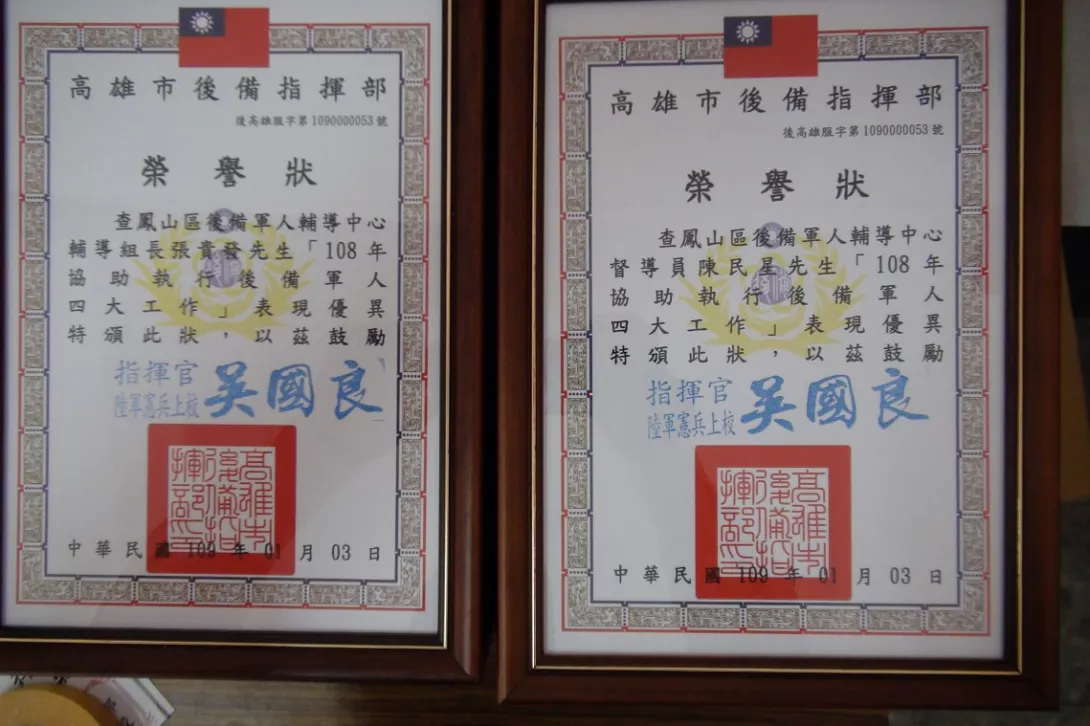 高雄市後備指揮部
後高雄服字第1090000053號
榮譽狀
查鳳山區後備軍人輔導中心
輔導組長張貴發先生「108年
協助執行後備軍人
四大工作」表現優異
特頒此狀，以茲鼓勵
指揮官
陸軍憲兵上校
吳國良
高雄市後備指揮部印
中華民國109年01月03日
高雄市後備指揮部
後高雄服字第1090000053號
榮譽狀
查鳳山區後備軍人輔導中心
督導員陳民星先生「108年
協助執行後備軍人
四大工作」表現優異
特頒此狀，以茲鼓勵
指揮官
陸軍憲兵上校
吳國良
高雄市後備指揮部印
中華民國109年01月03日